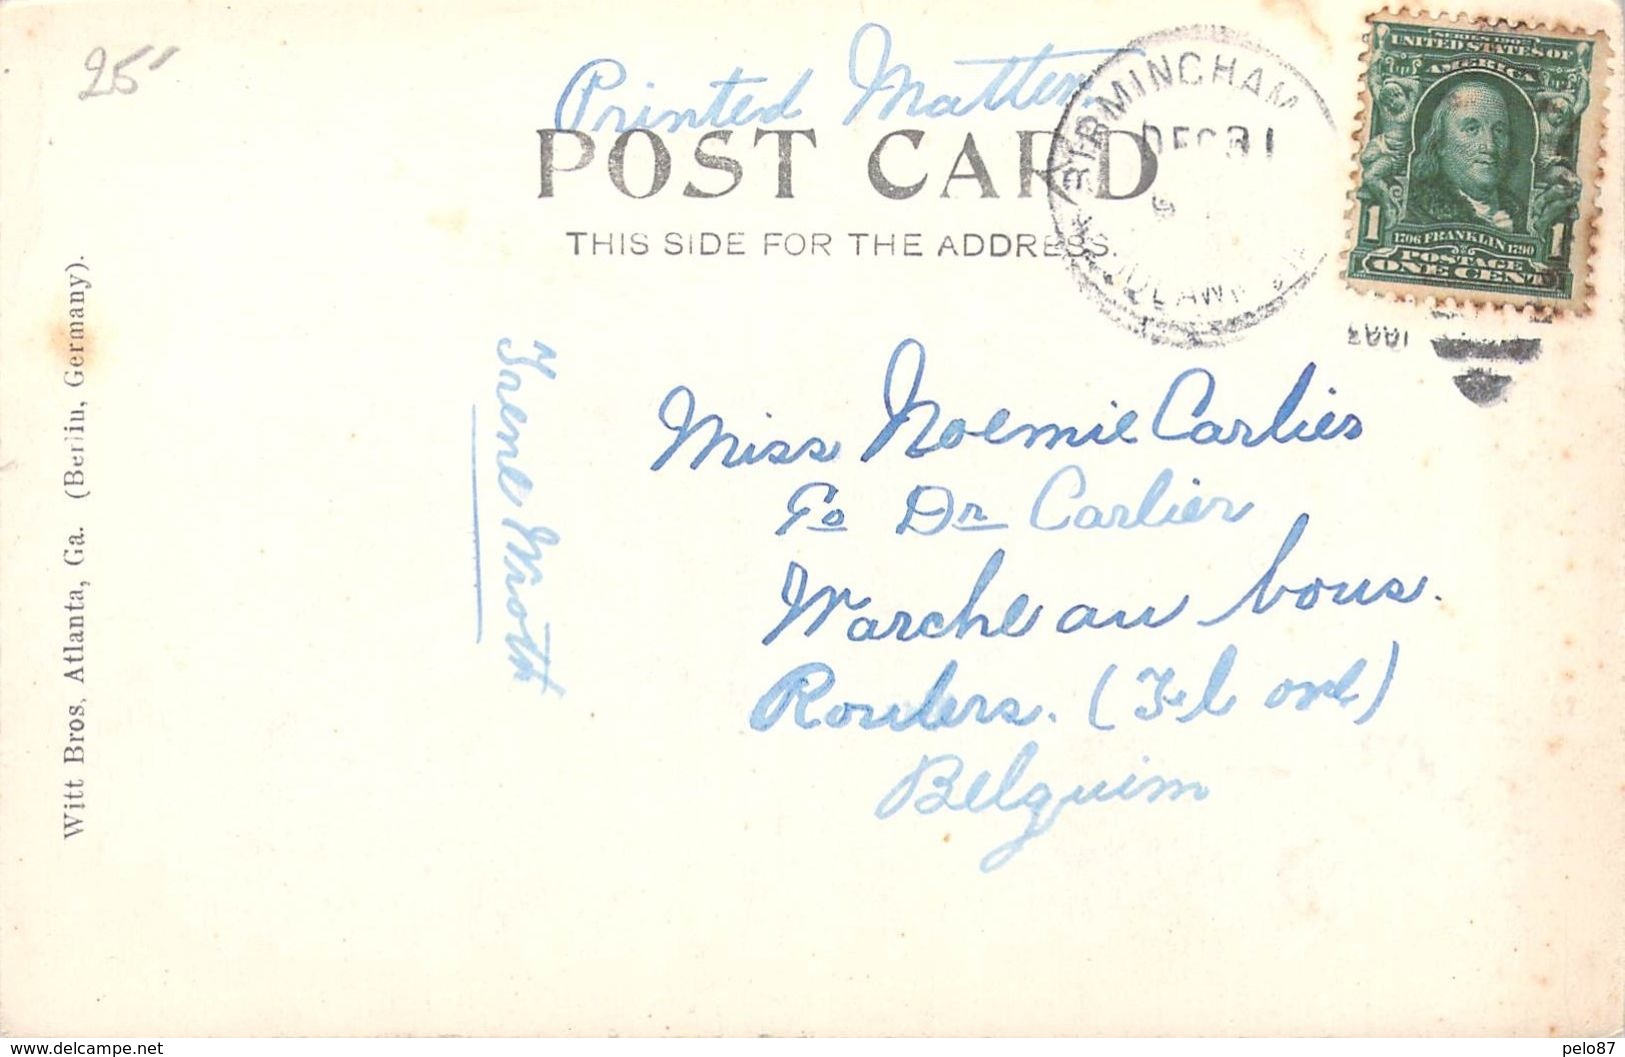 25
Printed Matter
POST CARD
THIS SIDE FOR THE ADDRESS.
BIRMINGHAM
DEC 31
SERIES 1902
UNITED STATES OF
AMERICA
1706 FRANKLIN 1790
1 1
POSTAGE
ONE CENT
Miss Noemie Carlies
To Dr Carlier
Marche au bous.
Roulers. (Fl ord)
Belguim
Irene
Witt Bros, Atlanta, Ga. (Berlin, Germany).
www.delcampe.net
pelo87